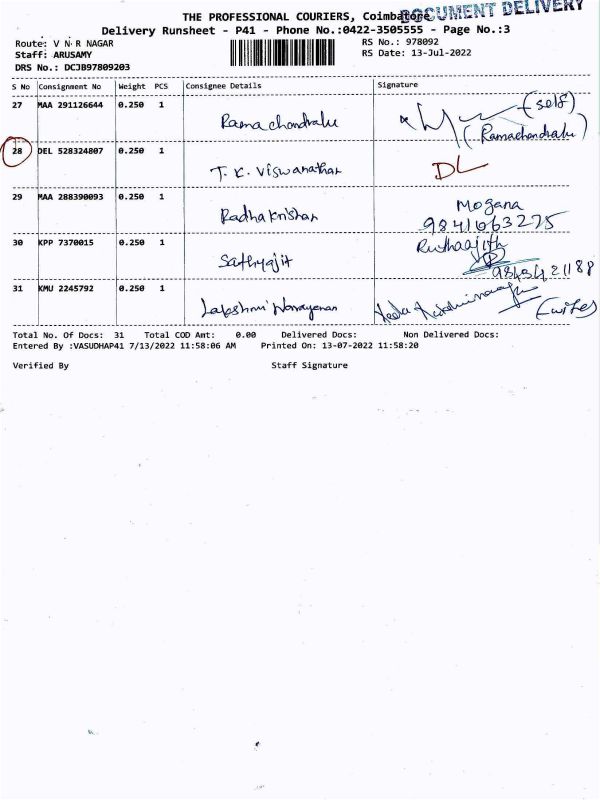 THE PROFESSIONAL COURIERS, Coimbatore
DOCUMENT DELIVERY
Delivery Runsheet - P41 - Phone No.:0422-3505555 - Page No.:3
Route: V N R NAGAR
RS No.: 978092
Staff: ARUSAMY
RS Date: 13-Jul-2022
DRS No.: DCJB97809203
S No Consignment No Weight PCS Consignee Details Signature
27 MAA 291126644 0.250 1 Ramachandralu (self)
(Ramachandralu)
28 DEL 528324807 0.250 1 T. K. Viswanathan DL
29 MAA 288390093 0.250 1 Radhakrishan Mogana
9841063275
30 KPP 7370015 0.250 1 Sathyajit
31 KMU 2245792 0.250 1 Lakshmi Narayanan (wife)
Total No. Of Docs: 31 Total COD Amt: 0.00 Delivered Docs: Non Delivered Docs:
Entered By :VASUDHAP41 7/13/2022 11:58:06 AM Printed On: 13-07-2022 11:58:20
Verified By Staff Signature